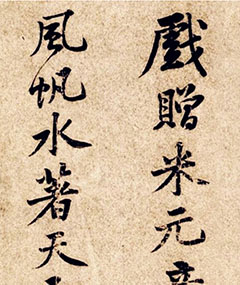 戲贈米元
風帆水著天